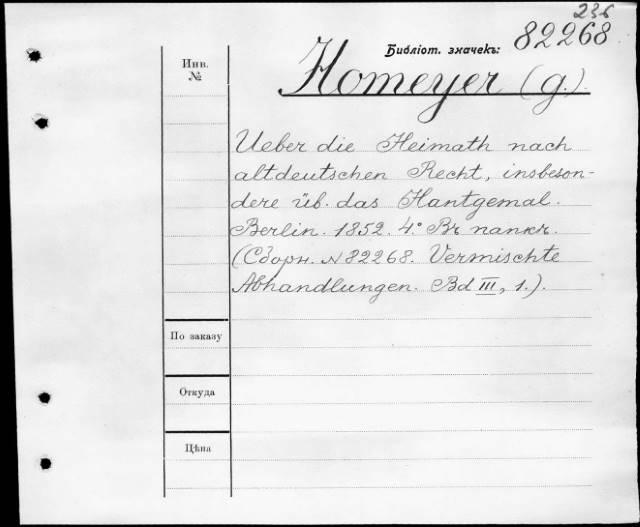 236
Библіот. значекъ: 82268
Инв.
№
Homeyer (G.).
Ueber die Heimath nach
altdeutschen Recht, insbeson-
dere üb. das Hantgemal.
Berlin. 1852. 4.° Въ папкѣ.
(Сборн. №82268. Vermischte
Abhandlungen. Bd III, 1.).
По заказу
Откуда
Цѣна